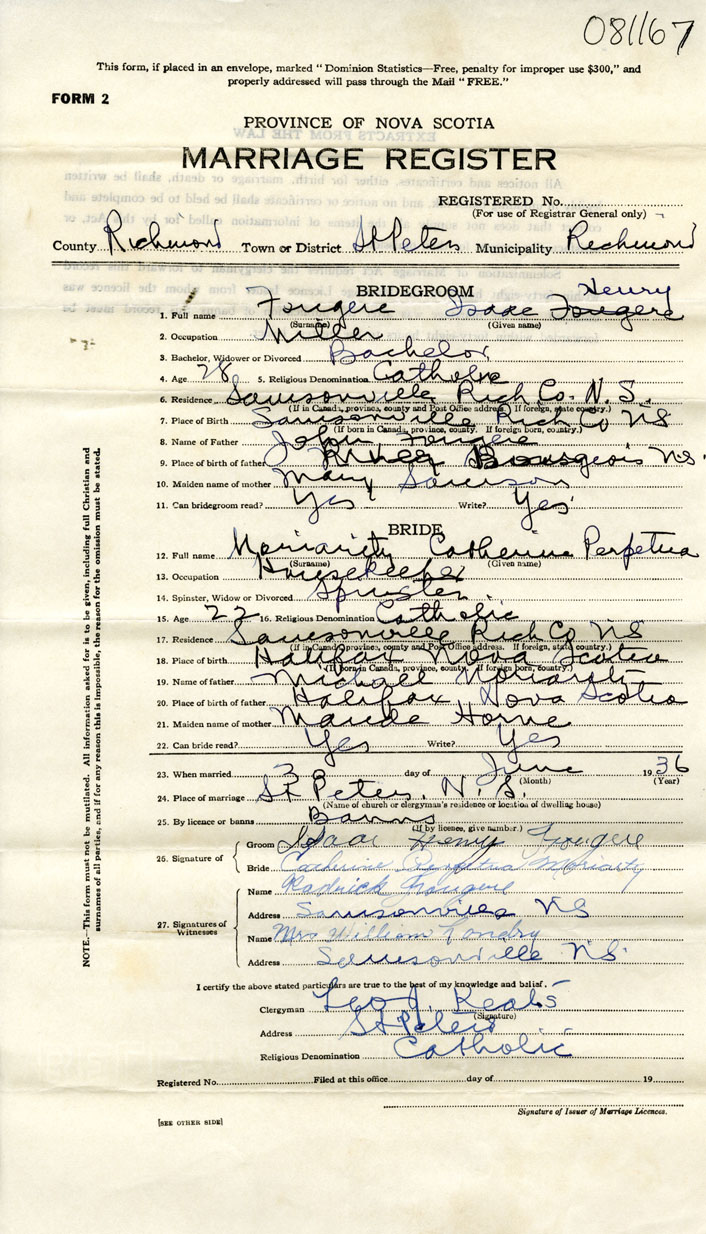 081167
This form, if placed in an envelope, marked "Dominion Statistics—Free, penalty for improper use $300," and
properly addressed will pass through the Mail "FREE."
FORM 2
PROVINCE OF NOVA SCOTIA
MARRIAGE REGISTER
REGISTERED No.
(For use of Registrar General only)
County Richmond Town or District St Peters Municipality Richmond
BRIDEGROOM
Henry
1. Full name Fougere Isaac Fougere
(Surname) (Given name)
2. Occupation Miller
3. Bachelor, Widower or Divorced Bachelor
4. Age 28 5. Religious Denomination Catholic
6. Residence Samsonville Rich Co. N.S.
(If in Canada, province, county and Post Office address. If foreign, state country.)
7. Place of Birth Samsonville Rich Co NS
(If born in Canada, province, county. If foreign born, country.)
8. Name of Father John Fougere
9. Place of birth of father River Bourgeois NS.
10. Maiden name of mother Mary Samson
11. Can bridegroom read? Yes Write? Yes
BRIDE
12. Full name Moriarity Catherine Perpetua
(Surname) (Given name)
13. Occupation Housekeeper
14. Spinster, Widow or Divorced Spinster
15. Age 22 16. Religious Denomination Catholic
17. Residence Samsonville Rich Co NS
(If in Canada, province, county and Post Office address. If foreign, state country.)
18. Place of birth Halifax Nova Scotia
(If born in Canada, province, county. If foreign born, country.)
19. Name of father Michael Moriarity
20. Place of birth of father Halifax Nova Scotia
21. Maiden name of mother Maude Horne
22. Can bride read? Yes Write? Yes
23. When married 3 day of June 1936
(Month) (Year)
24. Place of marriage St Peters. N.S.
(Name of church or clergyman's residence or location of dwelling house)
25. By licence or banns Banns
(If by licence, give number.)
26. Signature of
Groom Isaac Henry Fougere
Bride Catherine Perpetua Moriarity
27. Signatures of Witnesses
Name Fougere
Address Samsonville NS
Name Mrs William Landry
Address Samsonville NS.
I certify the above stated particulars are true to the best of my knowledge and belief.
Clergyman Leo J. Keats
(Signature)
Address St Peters
Religious Denomination Catholic
Registered No. Filed at this office day of 19
Signature of Issuer of Marriage Licences.
[SEE OTHER SIDE]
NOTE.—This form must not be mutilated. All information asked for is to be given, including full Christian and
surnames of all parties, and if for any reason this is impossible, the reason for the omission must be stated.